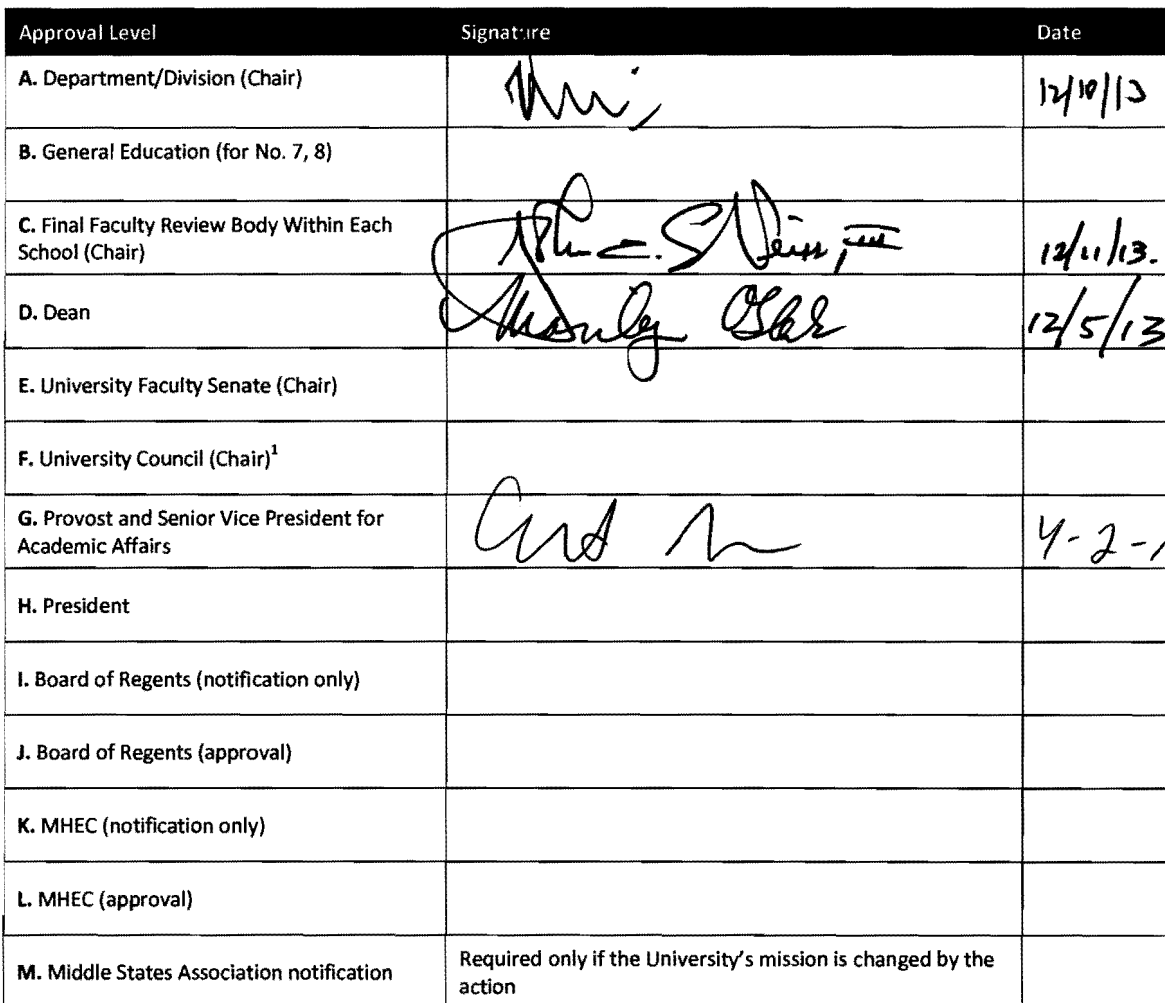 Approval Level Signature Date
A. Department/Division (Chair) 12/10/13
B. General Education (for No. 7, 8)
C. Final Faculty Review Body Within Each
School (Chair) 12/11/13.
D. Dean 12/5/13
E. University Faculty Senate (Chair)
F. University Council (Chair)1
G. Provost and Senior Vice President for
Academic Affairs 4-2-
H. President
I. Board of Regents (notification only)
J. Board of Regents (approval)
K. MHEC (notification only)
L. MHEC (approval)
M. Middle States Association notification Required only if the University's mission is changed by the
action